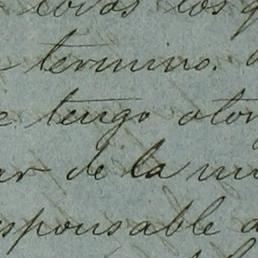 todos los
termino.
tengo otor
ar de la mi
esponsable a